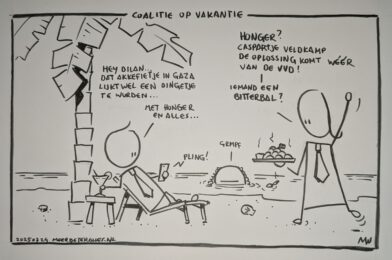 COALITIE OP VAKANTIE
HEY DILAN...
DAT AKKEFIETJE IN GAZA
LIJKT WEL EEN DINGETJE
TE WORDEN...
MET HONGER
EN ALLES...
PLING!
GRMPF
HONGER?
CASPARTJE VELDKAMP
DE OPLOSSING KOMT WÉÉR
VAN DE VVD!
IEMAND EEN
BITTERBAL?
MW